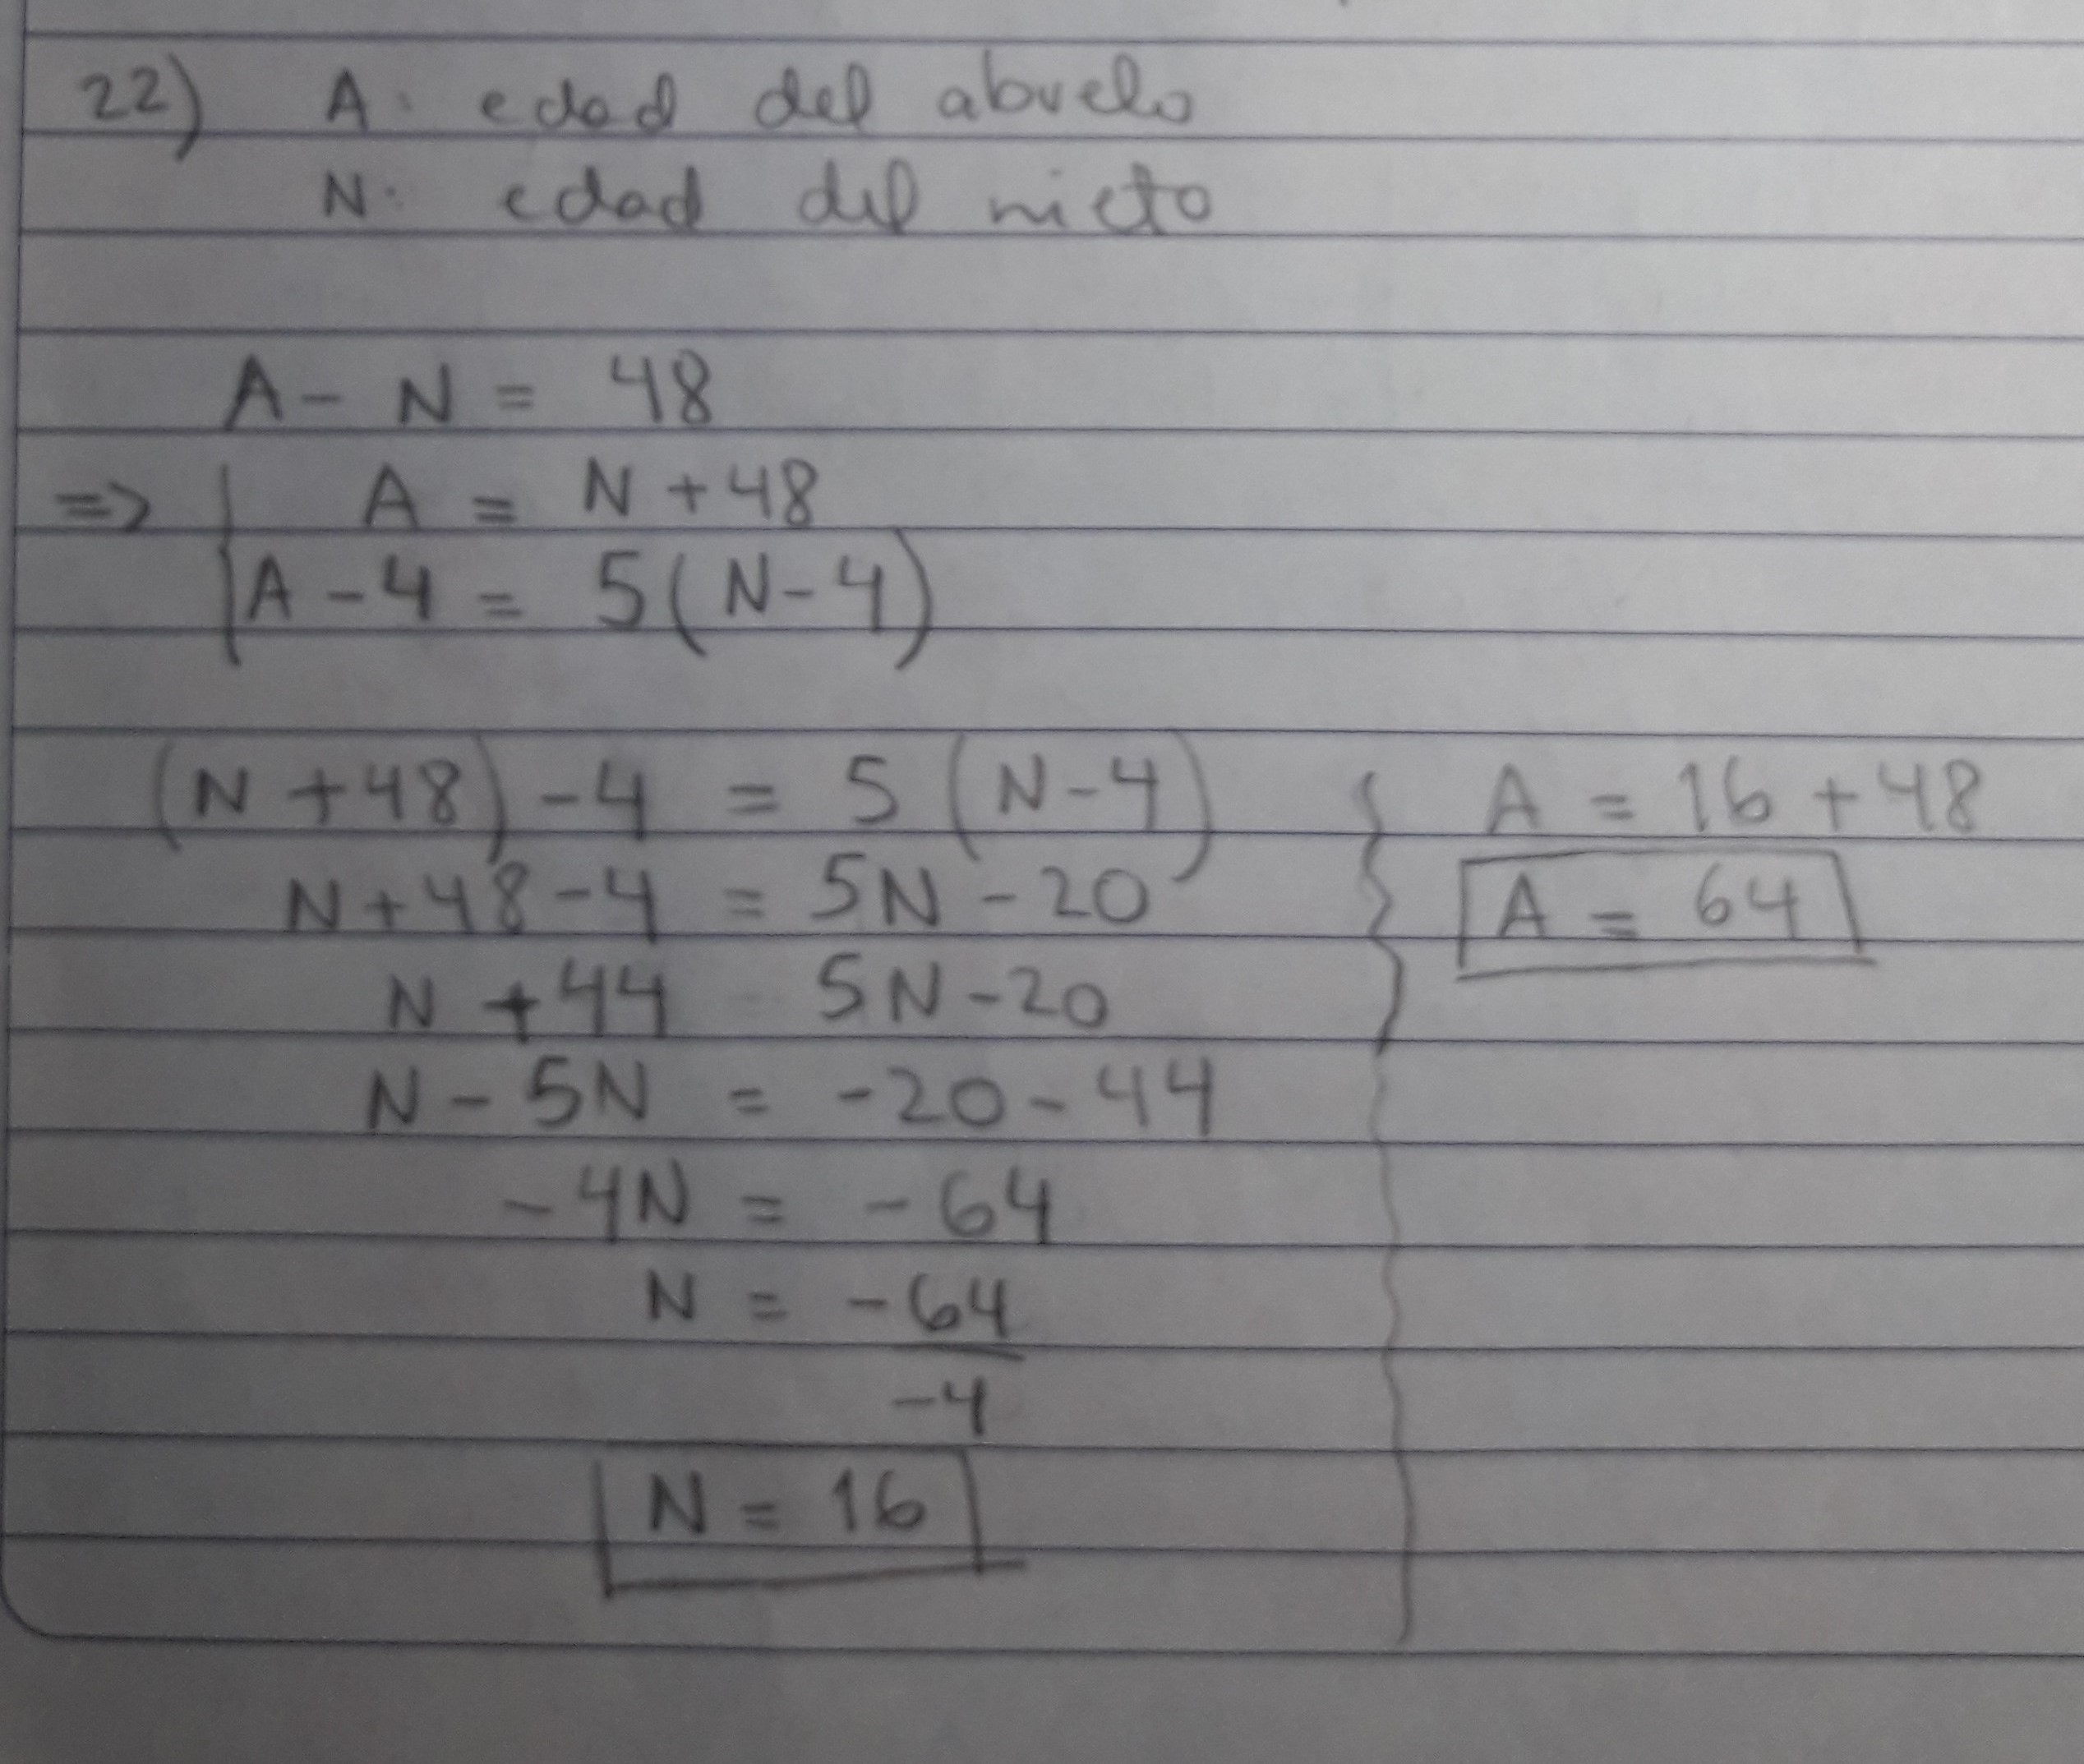 22) A: edad del abuelo
N: edad del nieto
A - N = 48
=> A = N + 48
A - 4 = 5(N - 4)
(N + 48) - 4 = 5(N - 4)
N + 48 - 4 = 5N - 20
N + 44 5N - 20
N - 5N = -20 - 44
-4N = -64
N = -64
-4
N = 16
A = 16 + 48
A = 64